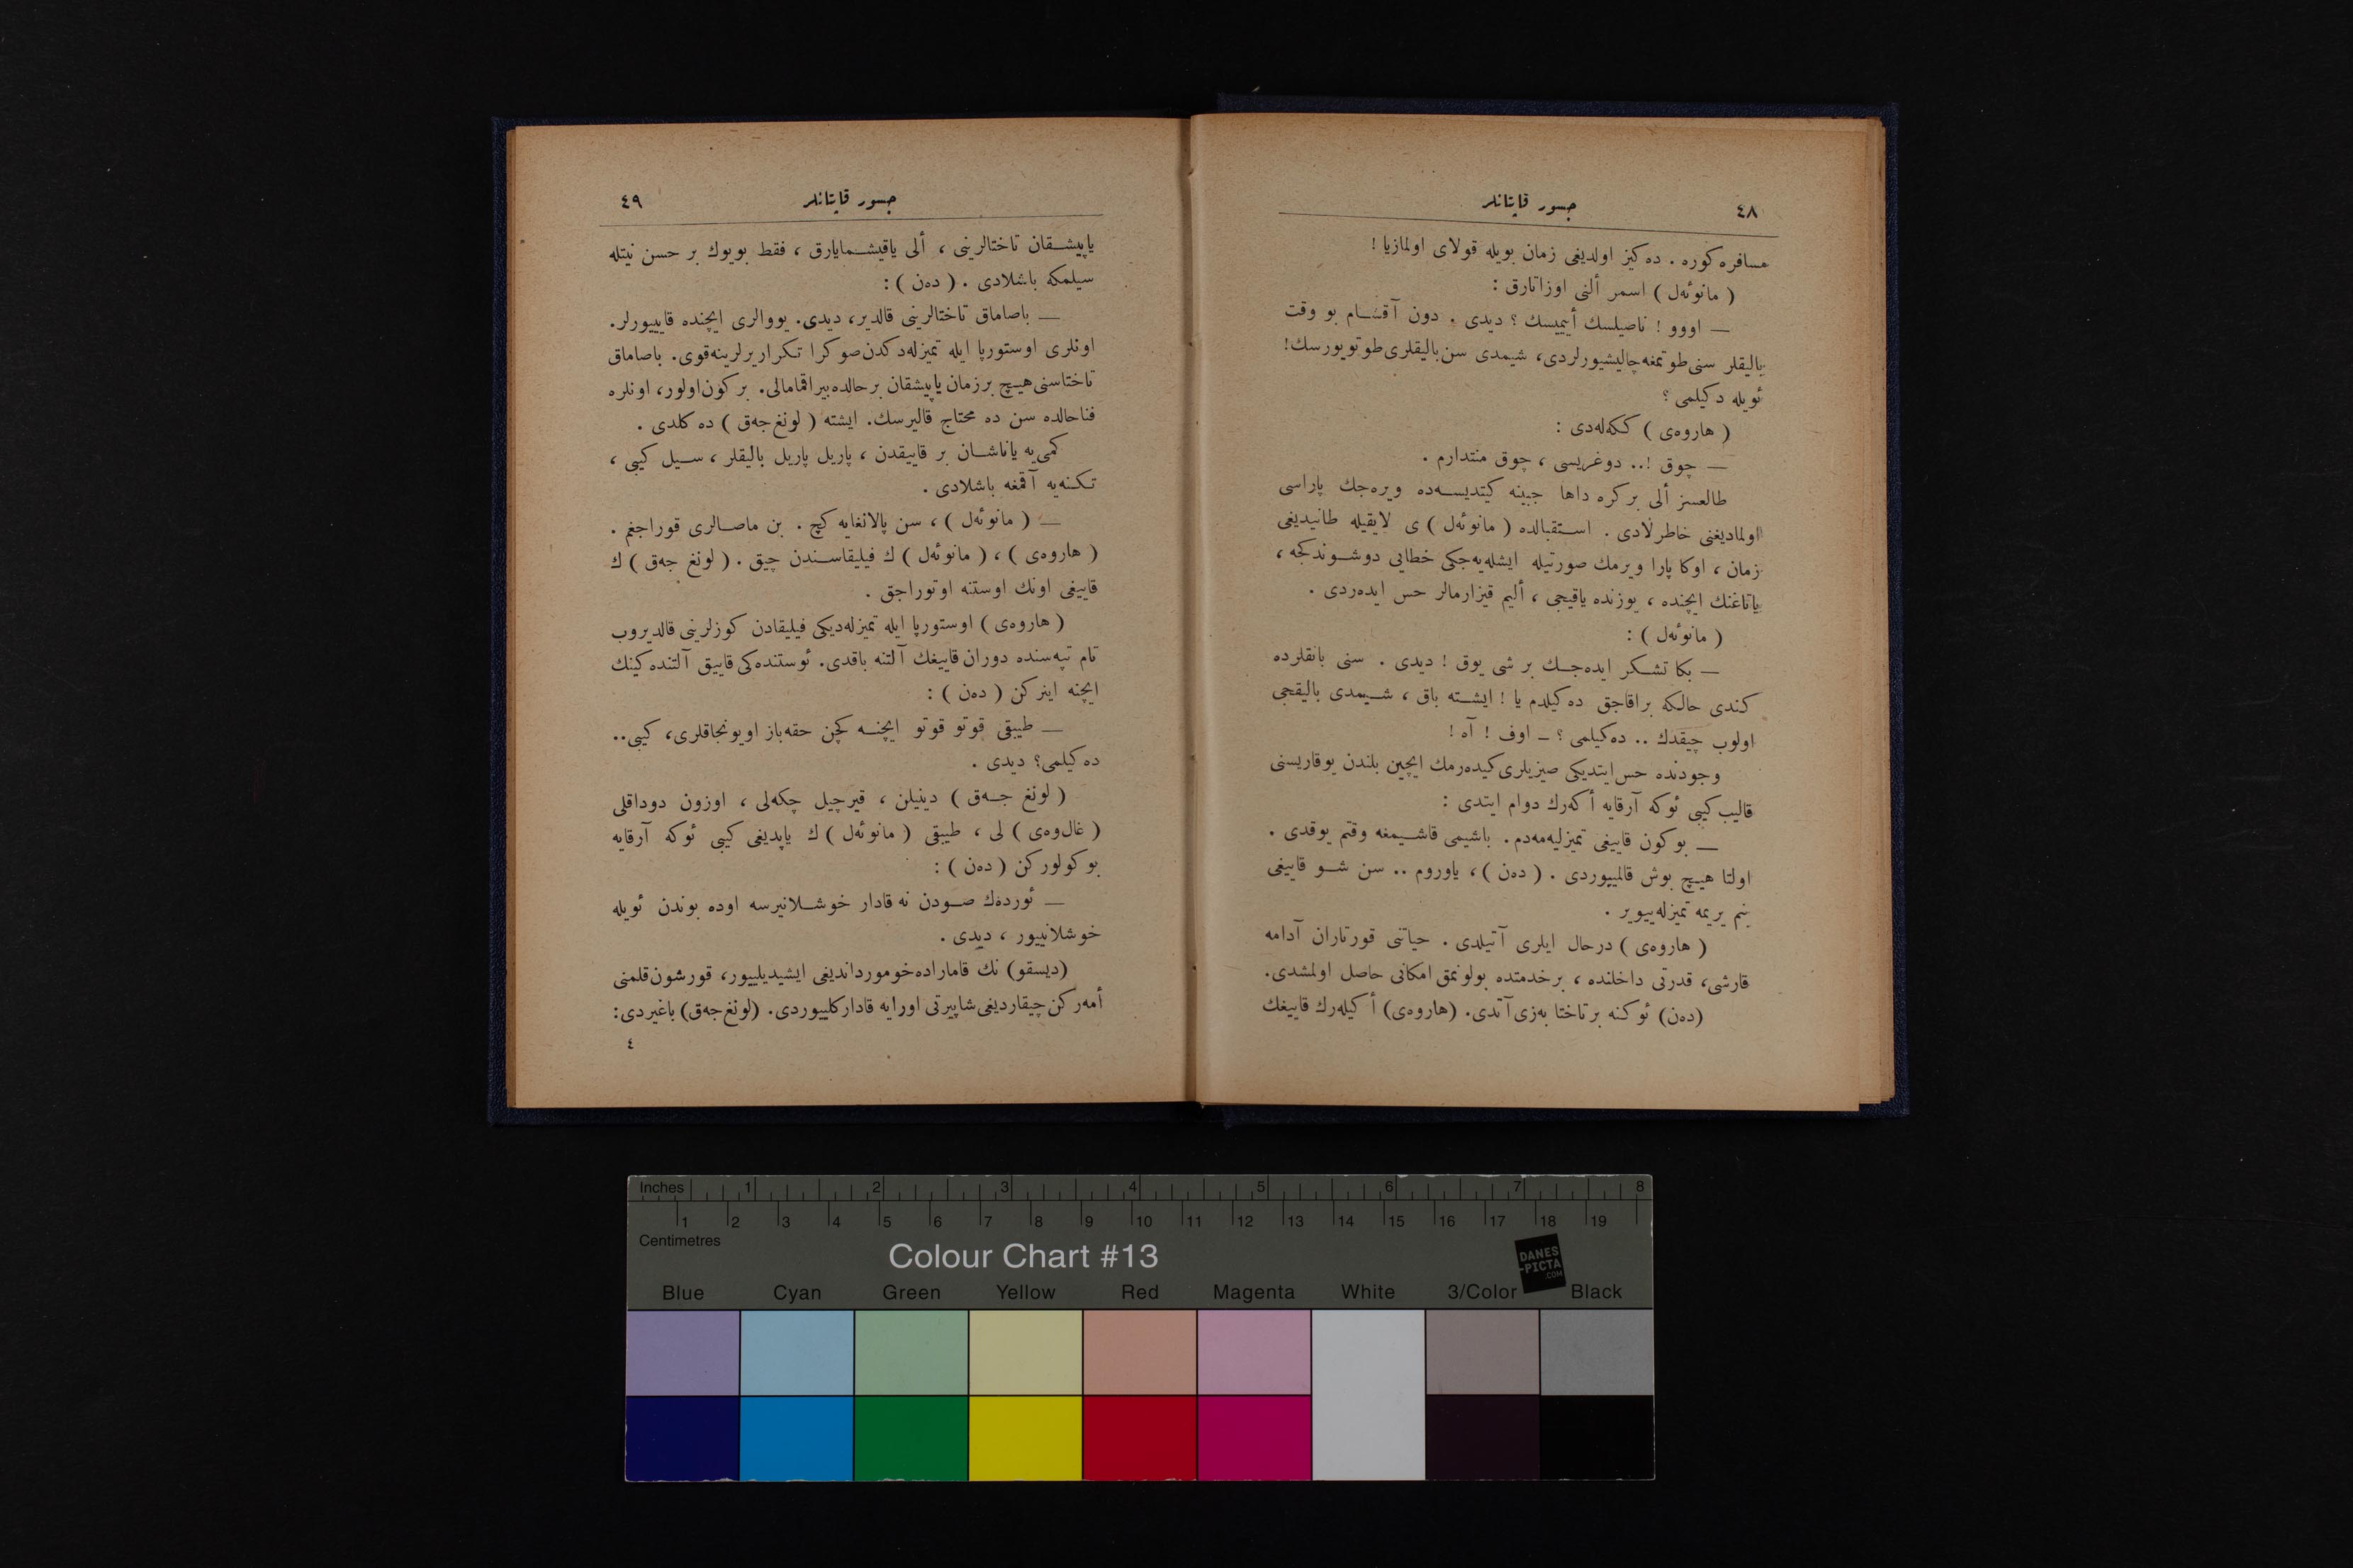 ٤٨
جسور قاپتانلر
مسافره كوره . ده‌كيز اولديغى زمان بويله قولاى اولمازيا !
( مانوئه‌ل ) اسمر ألنى اوزاتارق :
— اووو ! ناصيلسك أييميسك ؟ ديدى . دون آقشام بو وقت
باليقلر سنى طوتمغه چاليشيورلردى، شيمدى سن باليقلرى طوتويورسك!
ئويله دكيلمى ؟
( هاروه‌ى ) ككه‌له‌دى :
— چوق !.. دوغريسى ، چوق منتدارم .
طالعسز ألى بر كره داها جيبنه كيتديسه‌ده ويره‌جك پاراسى
اولماديغنى خاطرلادى . استقبالده ( مانوئه‌ل ) ى لايقيله طانيديغى
زمان ، اوكا پارا ويرمك صورتيله ايشله‌يه‌جكى خطايى دوشوندكجه ،
ياتاغنك ايچنده ، يوزنده ياقيجى ، أليم قيزارمالر حس ايده‌ردى .
( مانوئه‌ل ) :
— بكا تشكر ايده‌جك بر شى يوق ! ديدى . سنى بانقلرده
كندى حالكه براقاجق ده‌كيلدم يا ! ايشته باق ، شيمدى باليقجى
اولوب چيقدك .. ده‌كيلمى ؟ ــ اوف ! آه !
وجودنده حس ايتديكى صيزيلرى كيده‌رمك ايچين بلندن يوقاريسنى
قاليب كيبى ئوكه آرقايه أكه‌رك دوام ايتدى :
— بو كون قاييغى تميزليه‌مه‌دم . باشيمى قاشيمغه وقتم يوقدى .
اولتا هيچ بوش قالمييوردى . ( ده‌ن ) ، ياوروم .. سن شو قاييغى
بنم يريمه تميزله‌ييوير .
( هاروه‌ى ) درحال ايلرى آتيلدى . حياتنى قورتاران آدامه
قارشى، قدرتى داخلنده ، بر خدمتده بولونمق امكانى حاصل اولمشدى.
(ده‌ن) ئوكنه بر تاختا به‌زى آتدى. (هاروه‌ى) أكيله‌رك قاييغك
جسور قاپتانلر
٤٩
ياپيشقان تاختالرينى ، ألى ياقيشمايارق ، فقط بويوك بر حسن نيتله
سيلمكه باشلادى . ( ده‌ن ) :
— باصاماق تاختالرينى قالدير، ديدى. يووالرى ايچنده قاييیورلر.
اونلرى اوستورپا ايله تميزله‌دكدن صوكرا تكرار يرلرينه قوى. باصاماق
تاختاسنى هيچ بر زمان ياپيشقان بر حالده بيراقمامالى. بر كون اولور، اونلره
فنا حالده سن ده محتاج قاليرسك. ايشته ( لونغ جه‌ق ) ده كلدى .
كمى‌يه ياناشان بر قاييقدن ، پاريل پاريل باليقلر ، سيل كيبى ،
تكنه‌يه آقمغه باشلادى .
— ( مانوئه‌ل ) ، سن پالانغايه كچ . بن ماصالرى قوراجغم .
( هاروه‌ى ) ، ( مانوئه‌ل ) ك فيليقاسندن چيق . ( لونغ جه‌ق ) ك
قاييغى اونك اوستنه اوتوراجق .
( هاروه‌ى ) اوستورپا ايله تميزله‌ديكى فيليقادن كوزلرينى قالديروب
تام تپه‌سنده دوران قاييغك آلتنه باقدى. ئوستنده‌كى قاييق آلتنده‌كينك
ايچنه اينركن ( ده‌ن ) :
— طيبقى قوتو قوتو ايچنه كچن حقه‌باز اويونجاقلرى، كيبى..
ده‌كيلمى؟ ديدى .
( لونغ جه‌ق ) دينيلن ، قيرچيل چكه‌لى ، اوزون دوداقلى
( غال‌وه‌ى ) لى ، طيبقى ( مانوئه‌ل ) ك ياپديغى كيبى ئوكه آرقايه
بوكولوركن ( ده‌ن ) :
— ئورده‌ك صودن نه قادار خوشلانيرسه اوده بوندن ئويله
خوشلانييور ، ديدى .
(ديسقو) نك قاماراده خومورداندیغى ايشيديلييور، قورشون قلمنى
أمه‌ركن چيقارديغى شاپيرتى اورايه قادار كلييوردى. (لونغ جه‌ق) باغيردى:
٤
Inches 1 2 3 4 5 6 7 8
1 2 3 4 5 6 7 8 9 10 11 12 13 14 15 16 17 18 19
Centimetres
Colour Chart #13
DANES
-PICTA
.COM
Blue Cyan Green Yellow Red Magenta White 3/Color Black